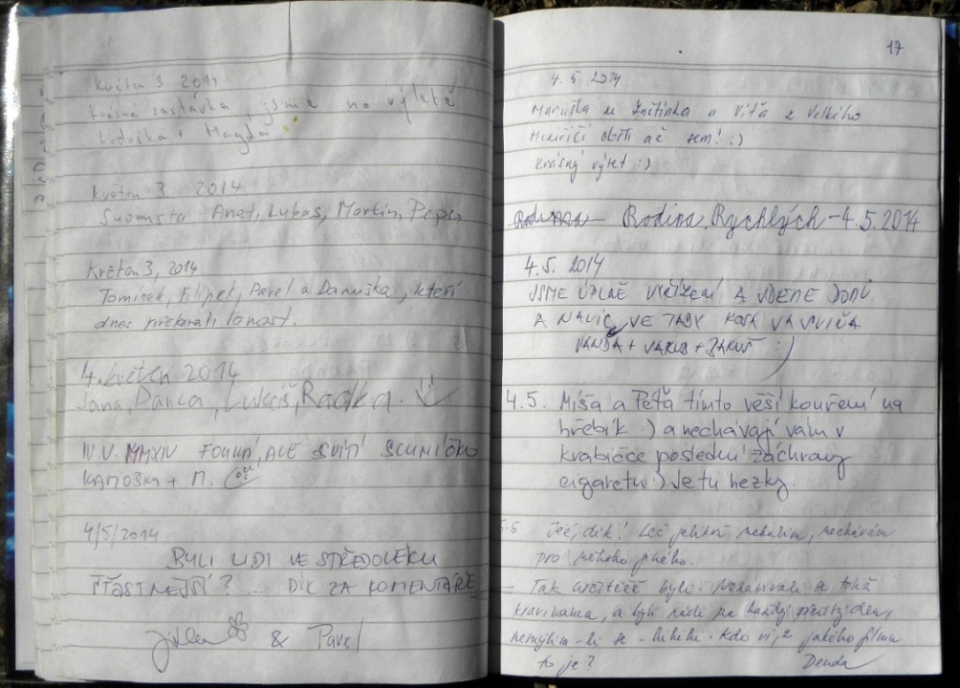 Květen 3 2014
Krásná zastávka, jsme na výletě
Liduška + Magda
Květen 3. 2014
Anet, Lukas, Martin, Pepin
Květen 3, 2014
Tomínek, Filípek, Pavel a Danuška, kteří
dnes překonali lenost.
4. květen 2014
Jana, Danča, Lukáš, Radka.
IV. V. MMXIV FOUKÁ, ALE SVÍTÍ SLUNÍČKO
KAMOŠKY + M.
4/5/2014
BYLI LIDI VE STŘEDOVĚKU
ŠŤASTNĚJŠÍ? ... DÍK ZA KOMENTÁŘE
& Pavel
17
4. 5. 2014
Maruška ze a Víťa z Velkého
Meziříčí došli až sem! :)
Krásný výlet :)
Rodina Rychlých - 4. 5. 2014
4.5. 2014
JSME ÚPLNĚ VYŘÍZENÍ A JDEME DOMŮ.
A NAVÍC VE TADY
VANDA + +
4.5. Míša a Peťa tímto věší kouření na
hřebík :) a nechávají vám v
krabičce poslední záchrany
cigaretu :) Je tu hezky.
5.5 Jéé, dík! Leč jelikož nekouřím, nechávám
pro někoho jiného.
- Tak byli
kravinama, a byli rádi za každý den,
nemýlím-li se - hihihi. Kdo ví, z jakého filmu
to je? Denda